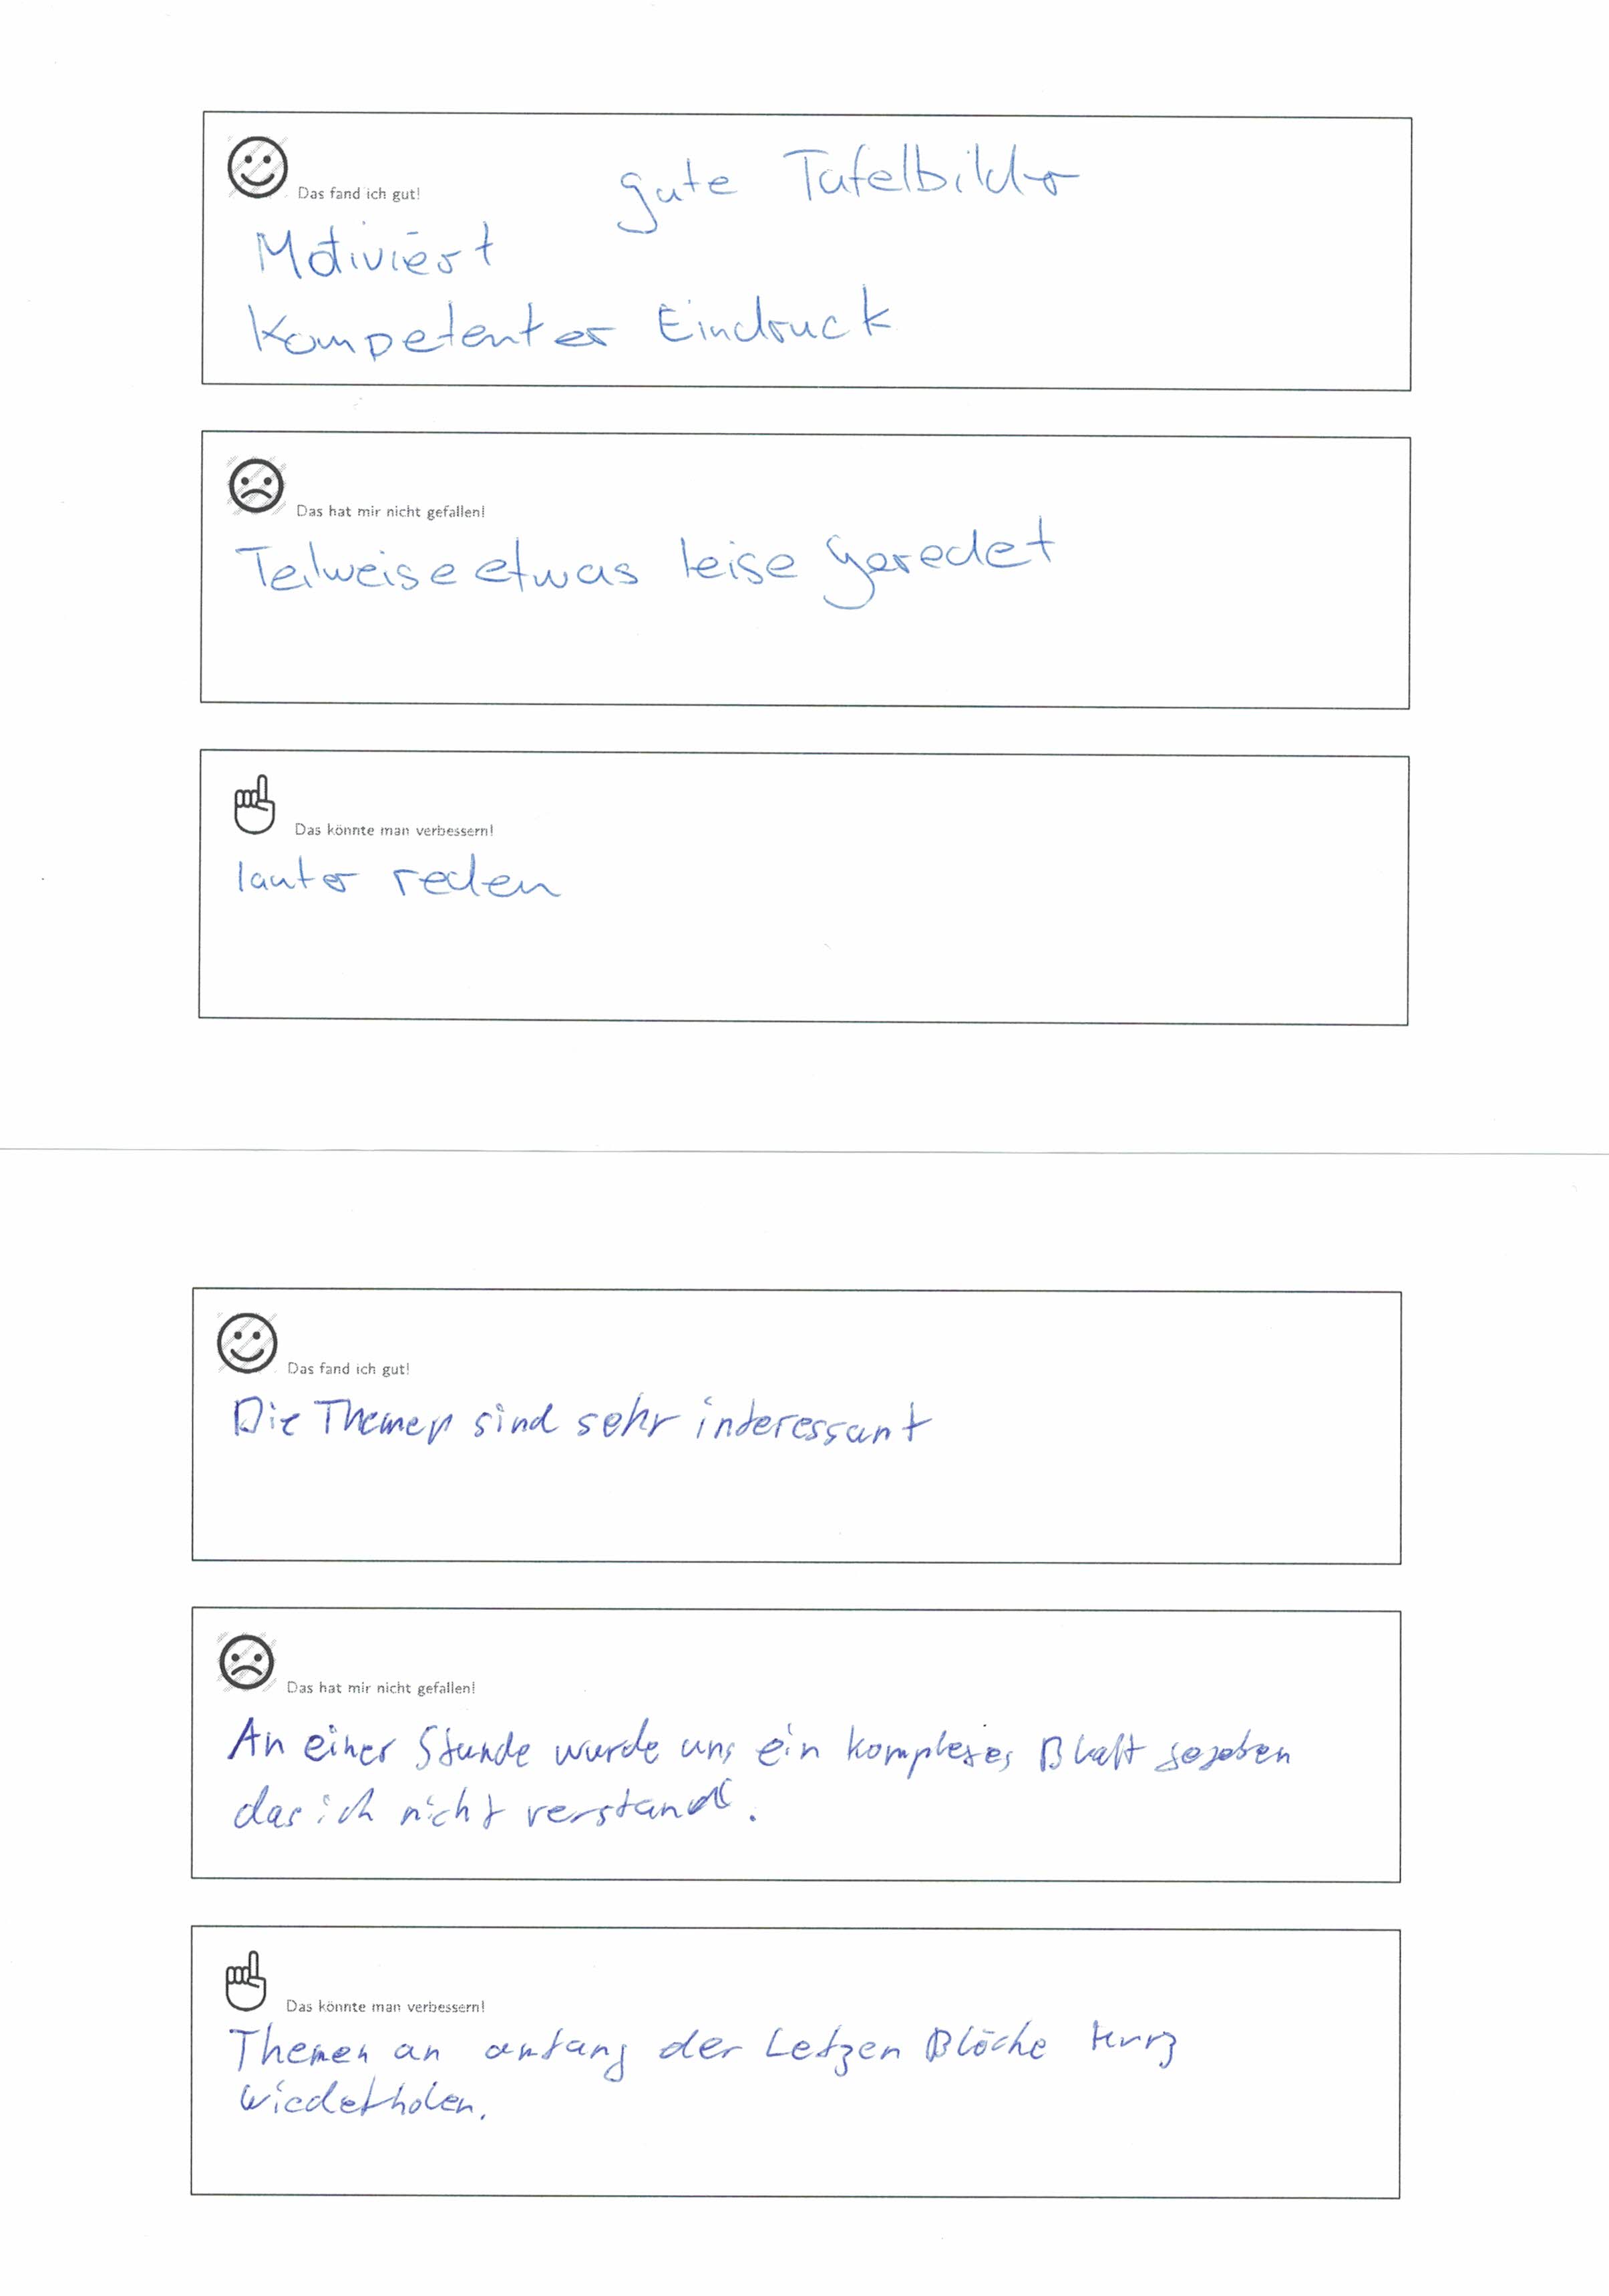 Das fand ich gut!
gute Tafelbilder
Motiviert
Kompetenter Eindruck
Das hat mir nicht gefallen!
Teilweise etwas leise geredet
Das könnte man verbessern!
lauter reden
Das fand ich gut!
Die Themen sind sehr interessant
Das hat mir nicht gefallen!
An einer Stunde wurde uns ein komplexes Blatt gegeben
das ich nicht verstand.
Das könnte man verbessern!
Themen an anfang der Letzen Blöcke kurz
wiederholen.